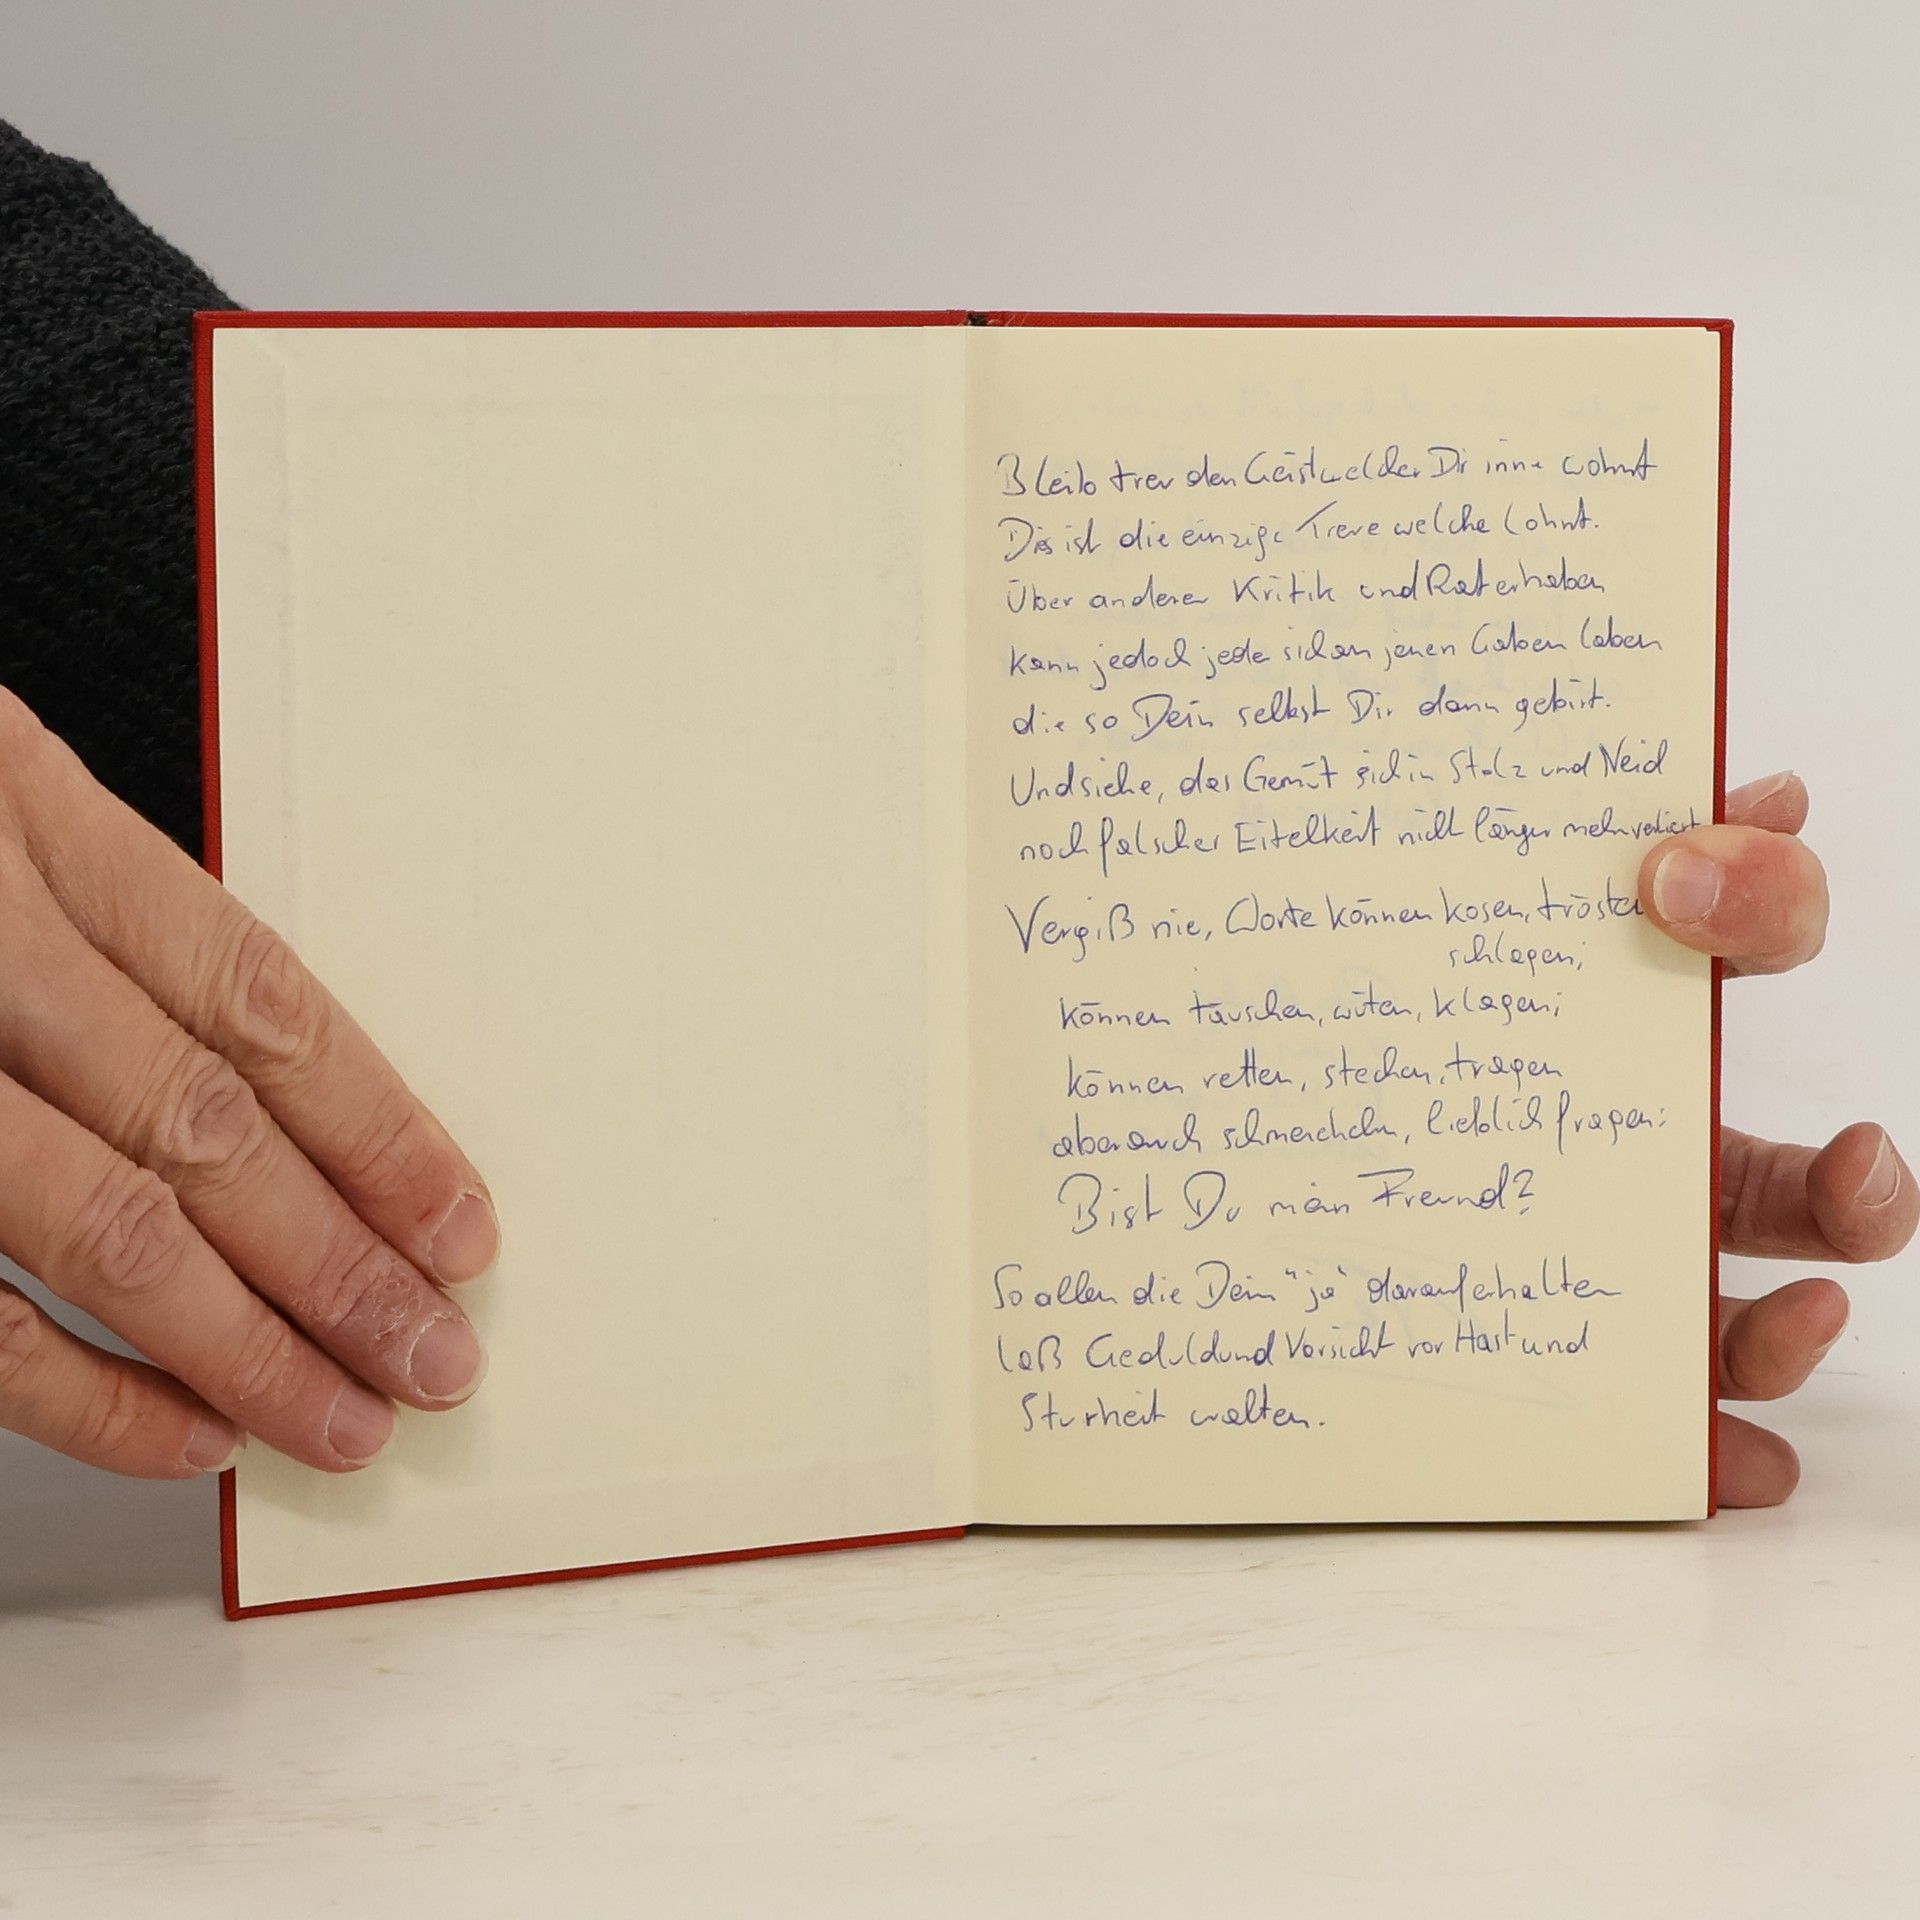 Bleib treu den Geist welcher Dir inne wohnt
Dies ist die einzige Treue welche lohnt.
Über anderer Kritik und Rat erhaben
kann jedoch jeder sich an jenen Gaben laben
die so Dein selbst Dir dann gebiert.
Und siehe, das Gemüt sich in Stolz und Neid
noch falscher Eitelkeit nicht länger mehr verliert
Vergiß nie, Worte können kosen, trösten
schlagen;
können täuschen, wüten, klagen;
können retten, stechen, tragen
aber auch schmeicheln, lieblich fragen:
Bist Du mein Freund?
So allen die Dein "ja" darauf erhalten
laß Geduld und Vorsicht vor Hast und
Sturheit walten.